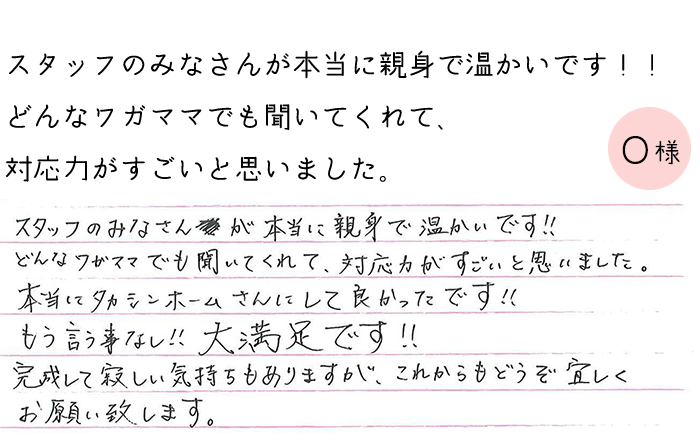 スタッフのみなさんが本当に親身で温かいです！！
どんなワガママでも聞いてくれて、
対応力がすごいと思いました。
O様
スタッフのみなさんが本当に親身で温かいです!!
どんなワガママでも聞いてくれて、対応力がすごいと思いました。
本当にタカシンホームさんにして良かったです!!
もう言う事なし!! 大満足です!!
完成して寂しい気持ちもありますが、これからもどうぞ宜しく
お願い致します。